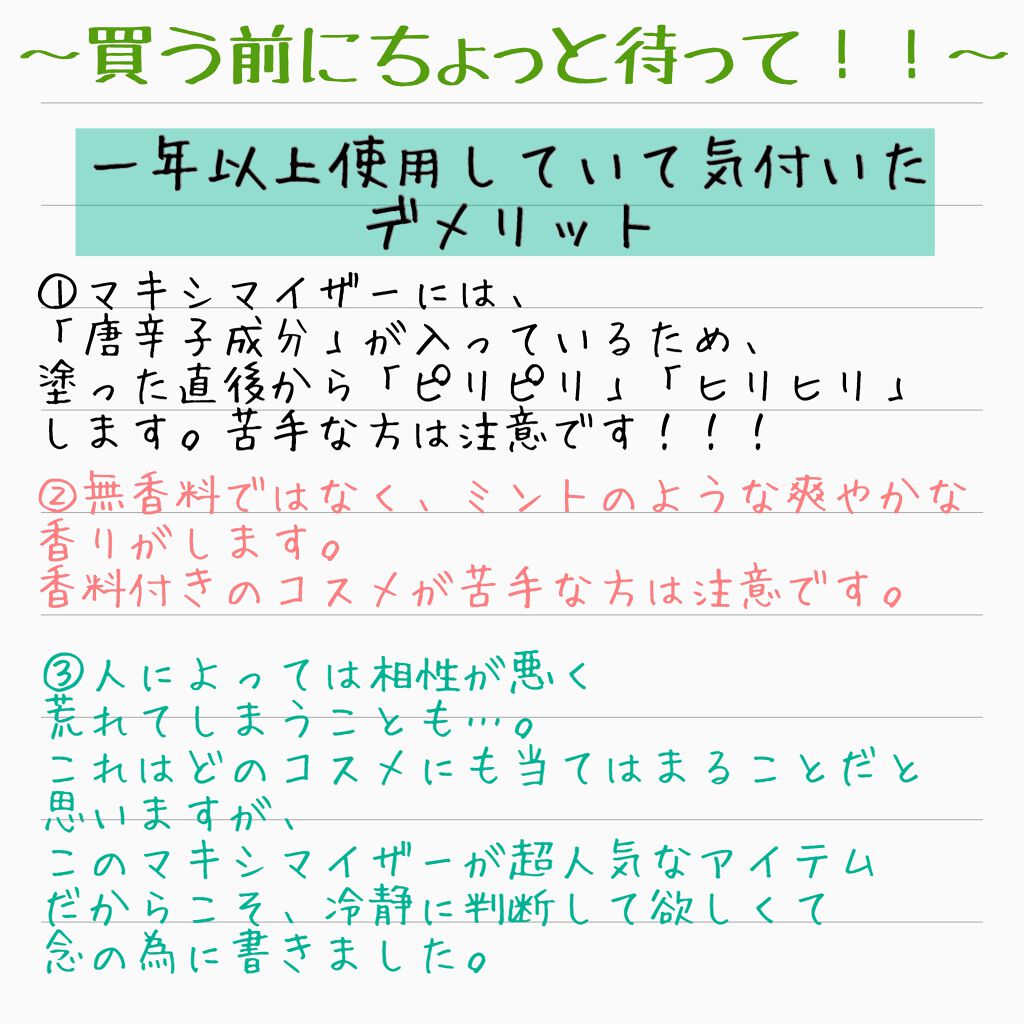 ～買う前にちょっと待って！！～
一年以上使用していて気付いた
デメリット
①マキシマイザーには、
「唐辛子成分」が入っているため、
塗った直後から「ピリピリ」「ヒリヒリ」
します。苦手な方は注意です！！！
②無香料ではなく、ミントのような爽やかな
香りがします。
香料付きのコスメが苦手な方は注意です。
③人によっては相性が悪く
荒れてしまうことも…。
これはどのコスメにも当てはまることだと
思いますが、
このマキシマイザーが超人気なアイテム
だからこそ、冷静に判断して欲しくて
念の為に書きました。